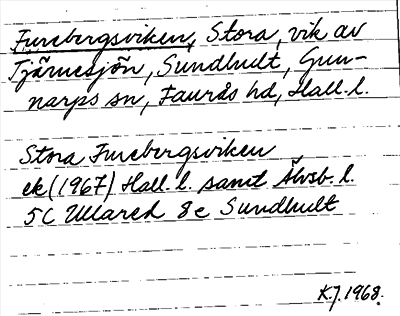 Furebergsviken, Stora, vik av
Tjärnesjön, Sundhult, Gun-
narps sn, Faurås hd, Hall. l.
Stora Furebergsviken
ek (1967) Hall. l. samt Älvsb. l.
5C Ullared 8e Sundhult
K.J. 1968.